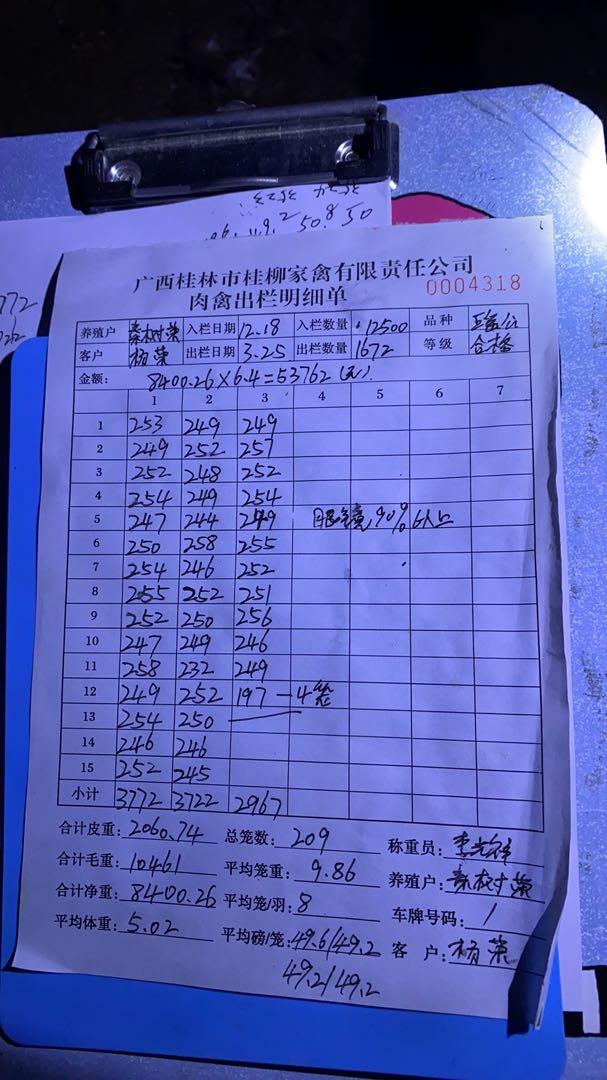 49.2 50.8 50
广西桂林市桂柳家禽有限责任公司
肉禽出栏明细单 0004318
养殖户 秦树荣 入栏日期 12.18 入栏数量 12500 品种
客户 杨荣 出栏日期 3.25 出栏数量 1672 等级 合格
金额: 8400.26×6.4=53762(元)
1 2 3 4 5 6 7
1 253 249 249
2 249 252 257
3 252 248 252
4 254 249 254
5 247 244 249 眼镜90%以上
6 250 258 255
7 254 246 252
8 255 252 251
9 252 250 256
10 247 249 246
11 258 232 249
12 249 252 197 —4笼
13 254 250
14 246 246
15 252 245
小计 3772 3722 2967
合计皮重: 2060.74 总笼数: 209 称重员:
合计毛重: 10461 平均笼重: 9.86 养殖户: 秦树荣
合计净重: 8400.26 平均笼/羽: 8 车牌号码: /
平均体重: 5.02 平均磅/笼: 49.6/49.2 客户: 杨荣
49.2/49.2